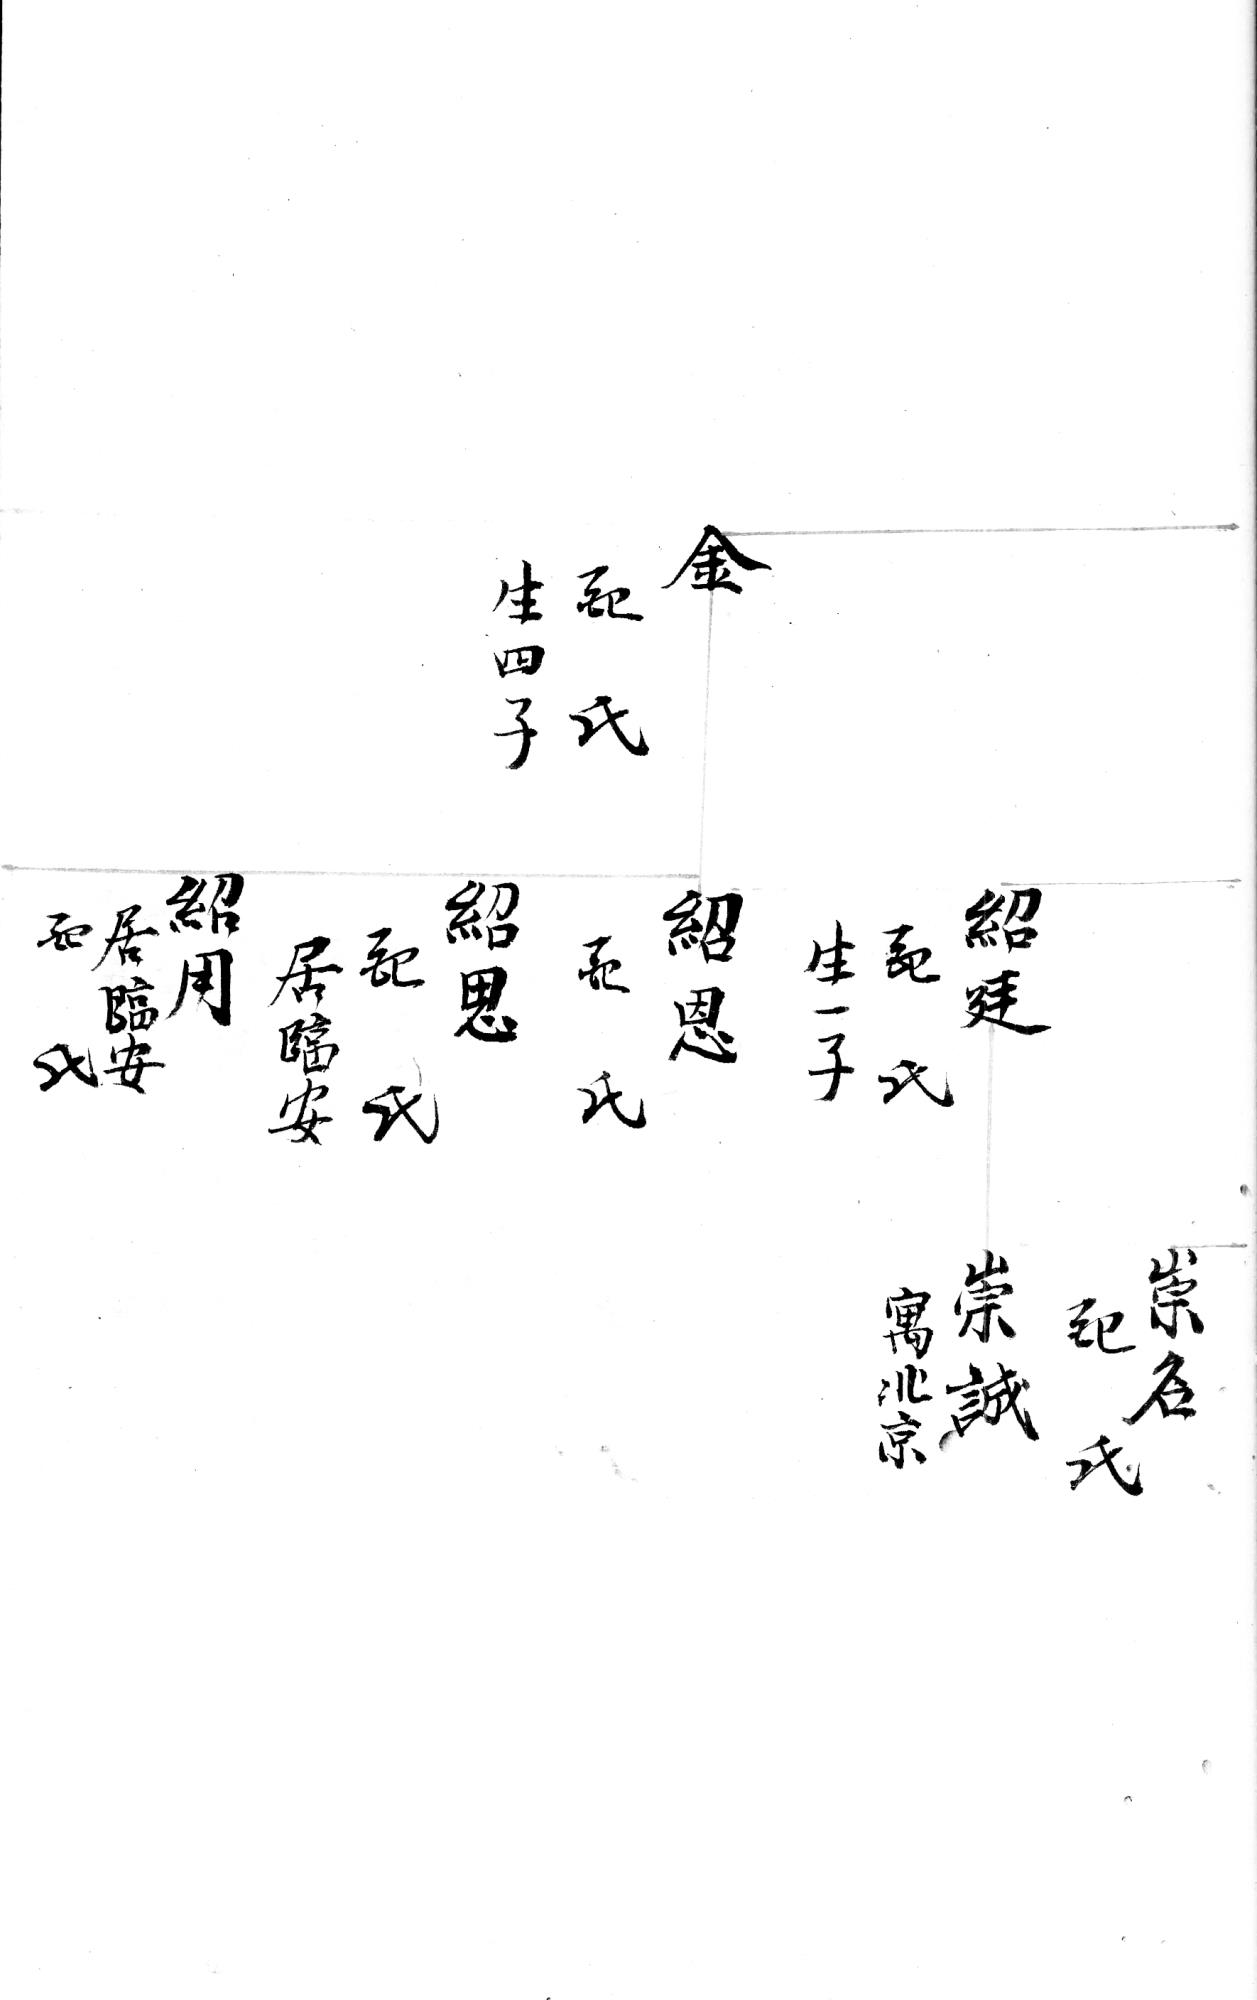 金
配 氏
生四子
紹廷
配 氏
生一子
紹恩
配 氏
紹思
配 氏
居臨安
紹用
居臨安
配 氏
崇名
配 氏
崇誠
寓北京